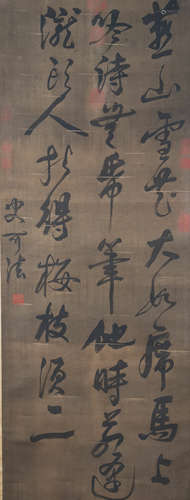 燕山雪花大如席馬上
吟詩無紙筆他時若逢
隴頭人折得梅枝須二
史可法